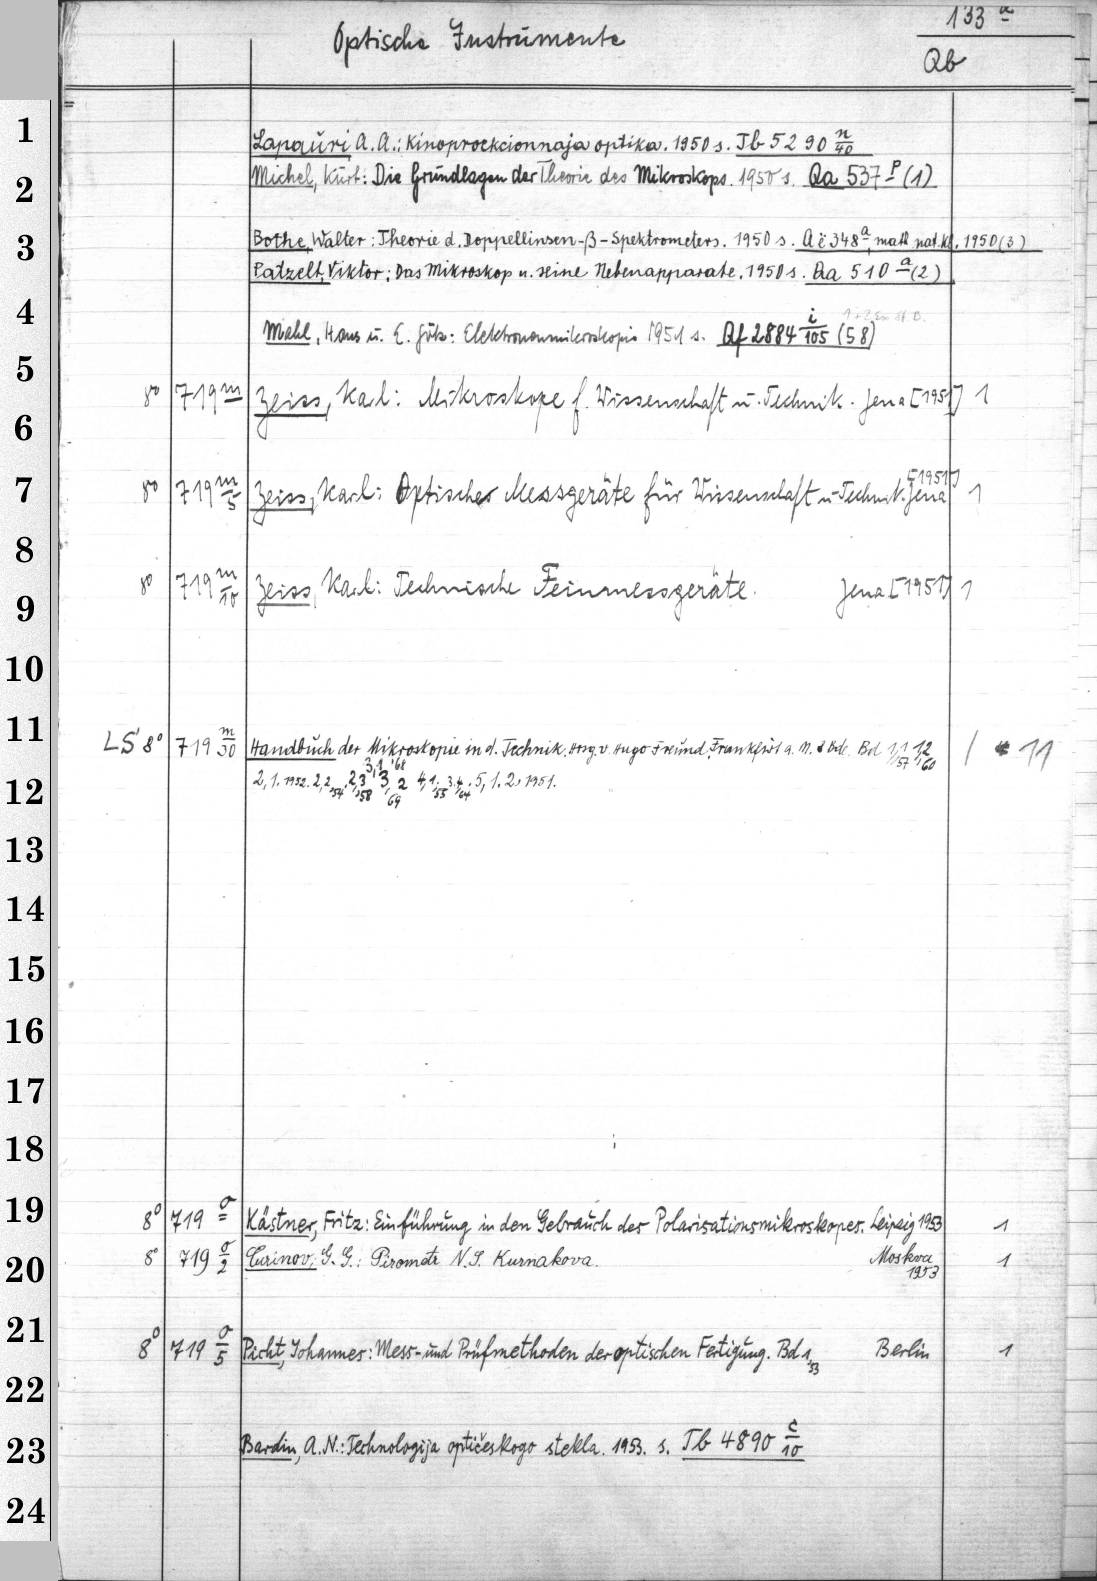 133 a
Optische Instrumente
Qb
1 Lapauri A. A.: Kinoproekcionnaja optika. 1950 s. Tb 5290 n/40
2 Michel, Kurt: Die Grundlagen der Theorie des Mikroskops. 1950 s. Qa 537 p (1)
3 Bothe, Walter: Theorie d. Doppellinsen-β-Spektrometers. 1950 s. Ač 348 a, math. nat. Kl. 1950 (3)
Patzelt, Viktor: Das Mikroskop u. seine Nebenapparate. 1950 s. Qa 510 a (2)
4 Mahl, Hans u. E. Gölz: Elektronenmikroskopie 1951 s. Qf 2884 i/105 (58)
5
8° 719 m Zeiss, Karl: Mikroskope f. Wissenschaft u. Technik. Jena [1951] 1
6
7 8° 719 m/5 Zeiss, Karl: Optisches Messgeräte für Wissenschaft u. Technik. Jena [1951] 1
8
9 8° 719 m/10 Zeiss, Karl: Technische Feinmessgeräte. Jena [1951] 1
10
11 LS 8° 719 m/30 Handbuch der Mikroskopie in d. Technik. Hrsg. v. Hugo Freund. Frankfurt a. M. Bd 1,1/57 1,2/60 11
12 2,1. 1952. 2,2/54. 2,3/58 3,1/68 3,2/69 4,1/55 3.4/64. 5,1.2. 1951.
13
14
15
16
17
18
19 8° 719 o Kästner, Fritz: Einführung in den Gebrauch des Polarisationsmikroskopes. Leipzig 1953 1
20 8° 719 o/2 Curinov, G. G.: Pirometr N. S. Kurnakova. Moskva 1953 1
21 8° 719 o/5 Picht, Johannes: Mess- und Prüfmethoden der optischen Fertigung. Bd 1/53 Berlin 1
22
23 Bardin, A. N.: Technologija optičeskogo stekla. 1953. s. Tb 4890 c/10
24